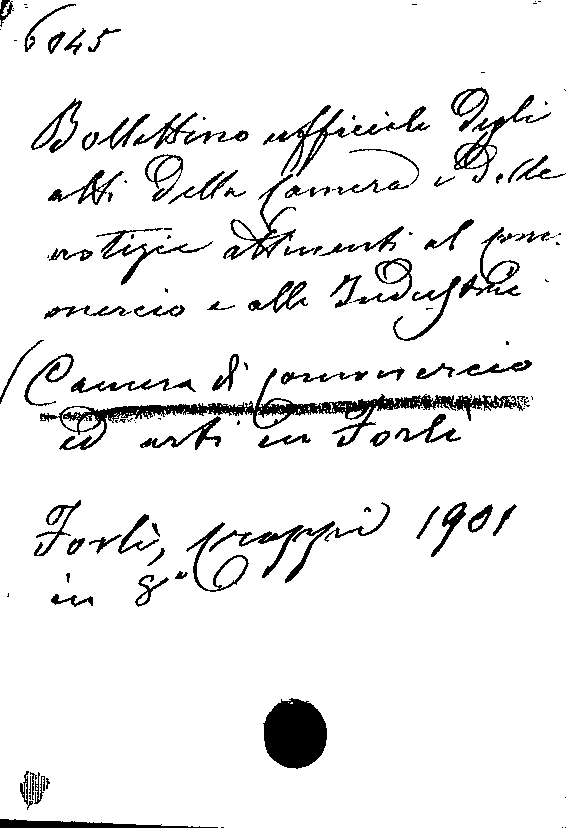 6045
Bollettino ufficiale degli
atti della Camera e delle
notizie attinenti al com:
mercio e alle Industrie
(Camera di commercio
ed arti in Forlì
Forlì, Croppi 1901
in 8°